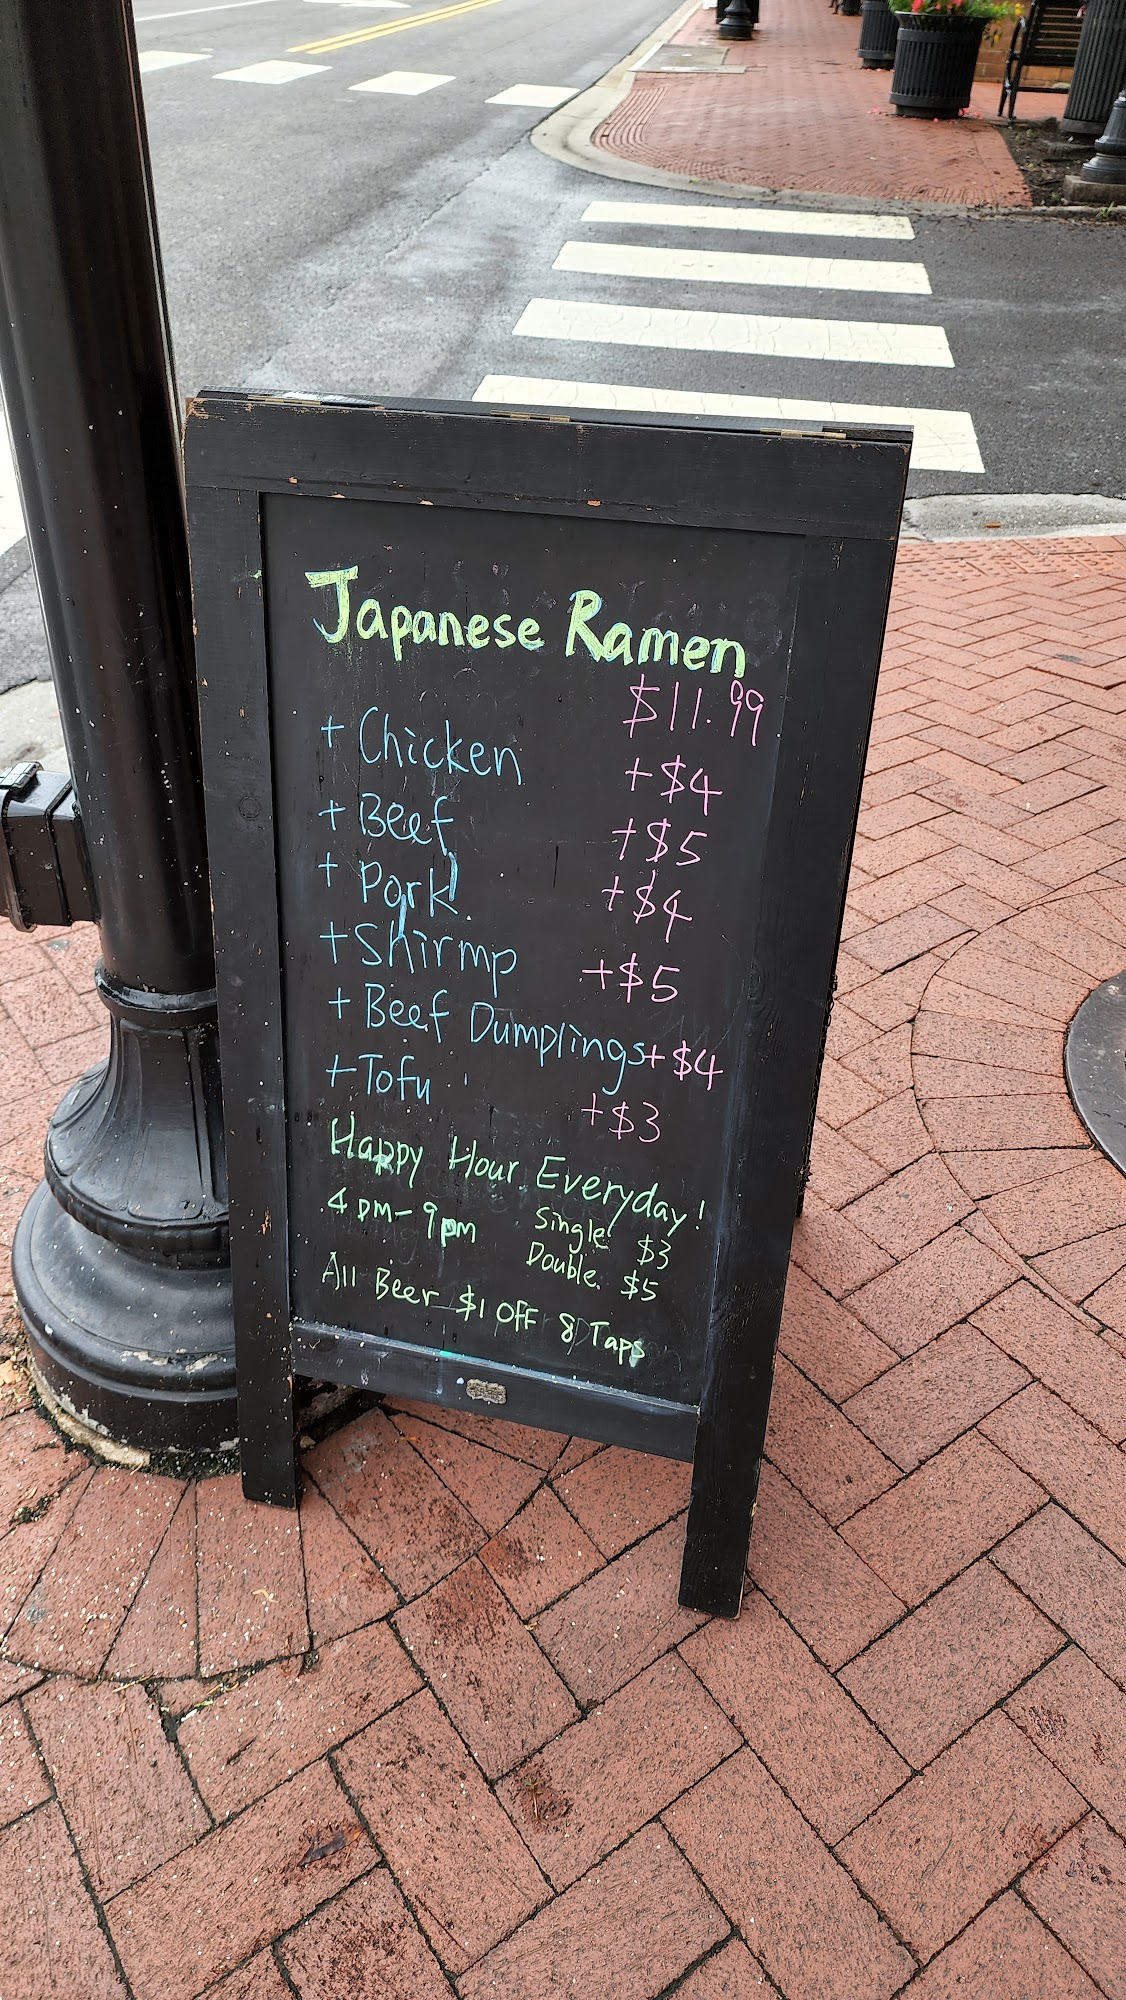 Japanese Ramen
$11.99
+ Chicken +$4
+ Beef +$5
+ Pork +$4
+ Shirmp +$5
+ Beef Dumplings +$4
+ Tofu +$3
Happy Hour Everyday!
4 pm - 9 pm Single $3
Double $5
All Beer $1 Off 8 Taps